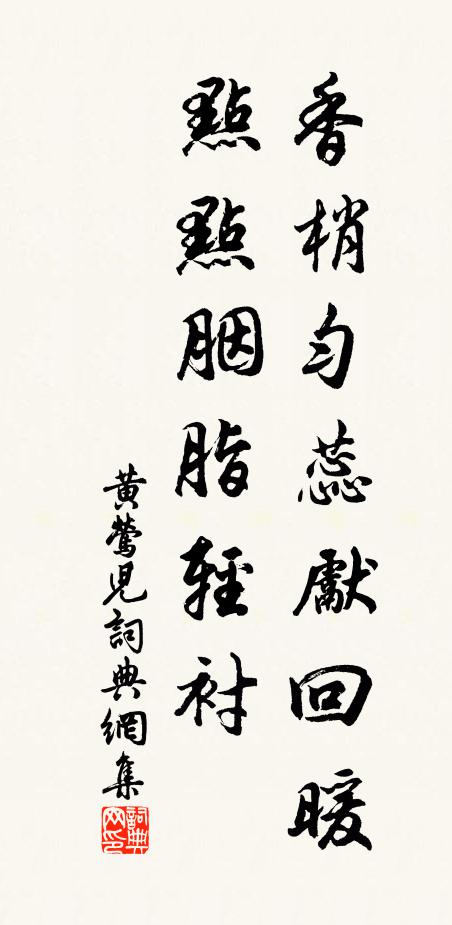 香梢勻蕊獻回暖
點點胭脂輕衬
黃鶯兒詞典網集
詞典网印